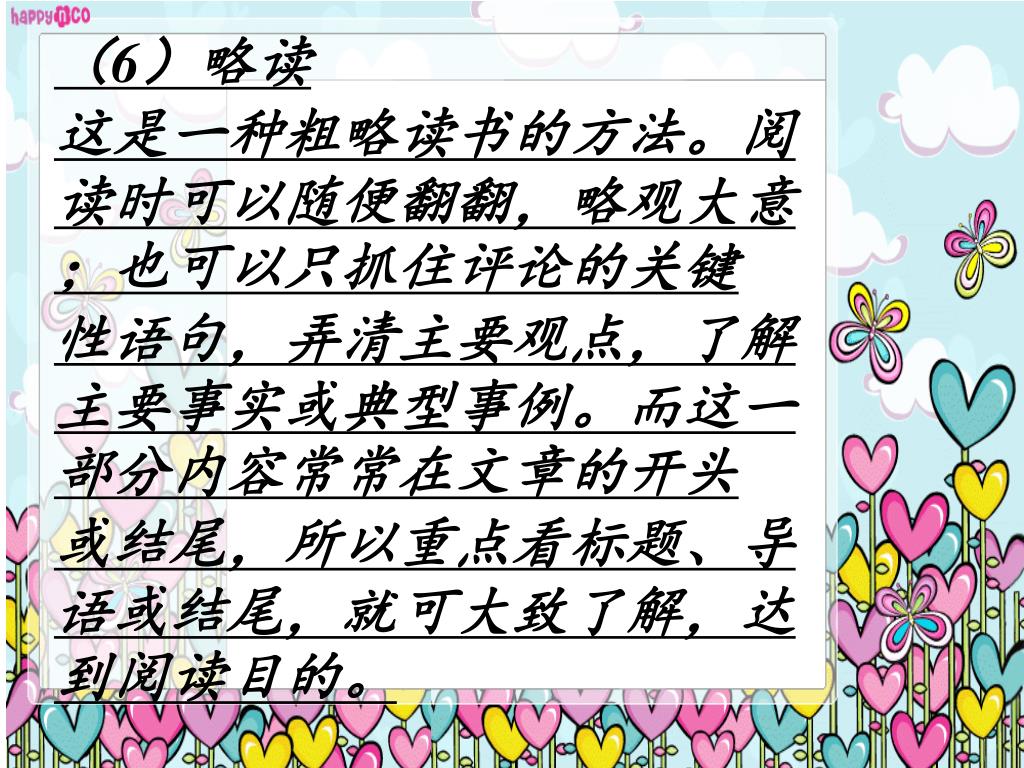 happynco
（6）略读
这是一种粗略读书的方法。阅
读时可以随便翻翻，略观大意
；也可以只抓住评论的关键
性语句，弄清主要观点，了解
主要事实或典型事例。而这一
部分内容常常在文章的开头
或结尾，所以重点看标题、导
语或结尾，就可大致了解，达
到阅读目的。